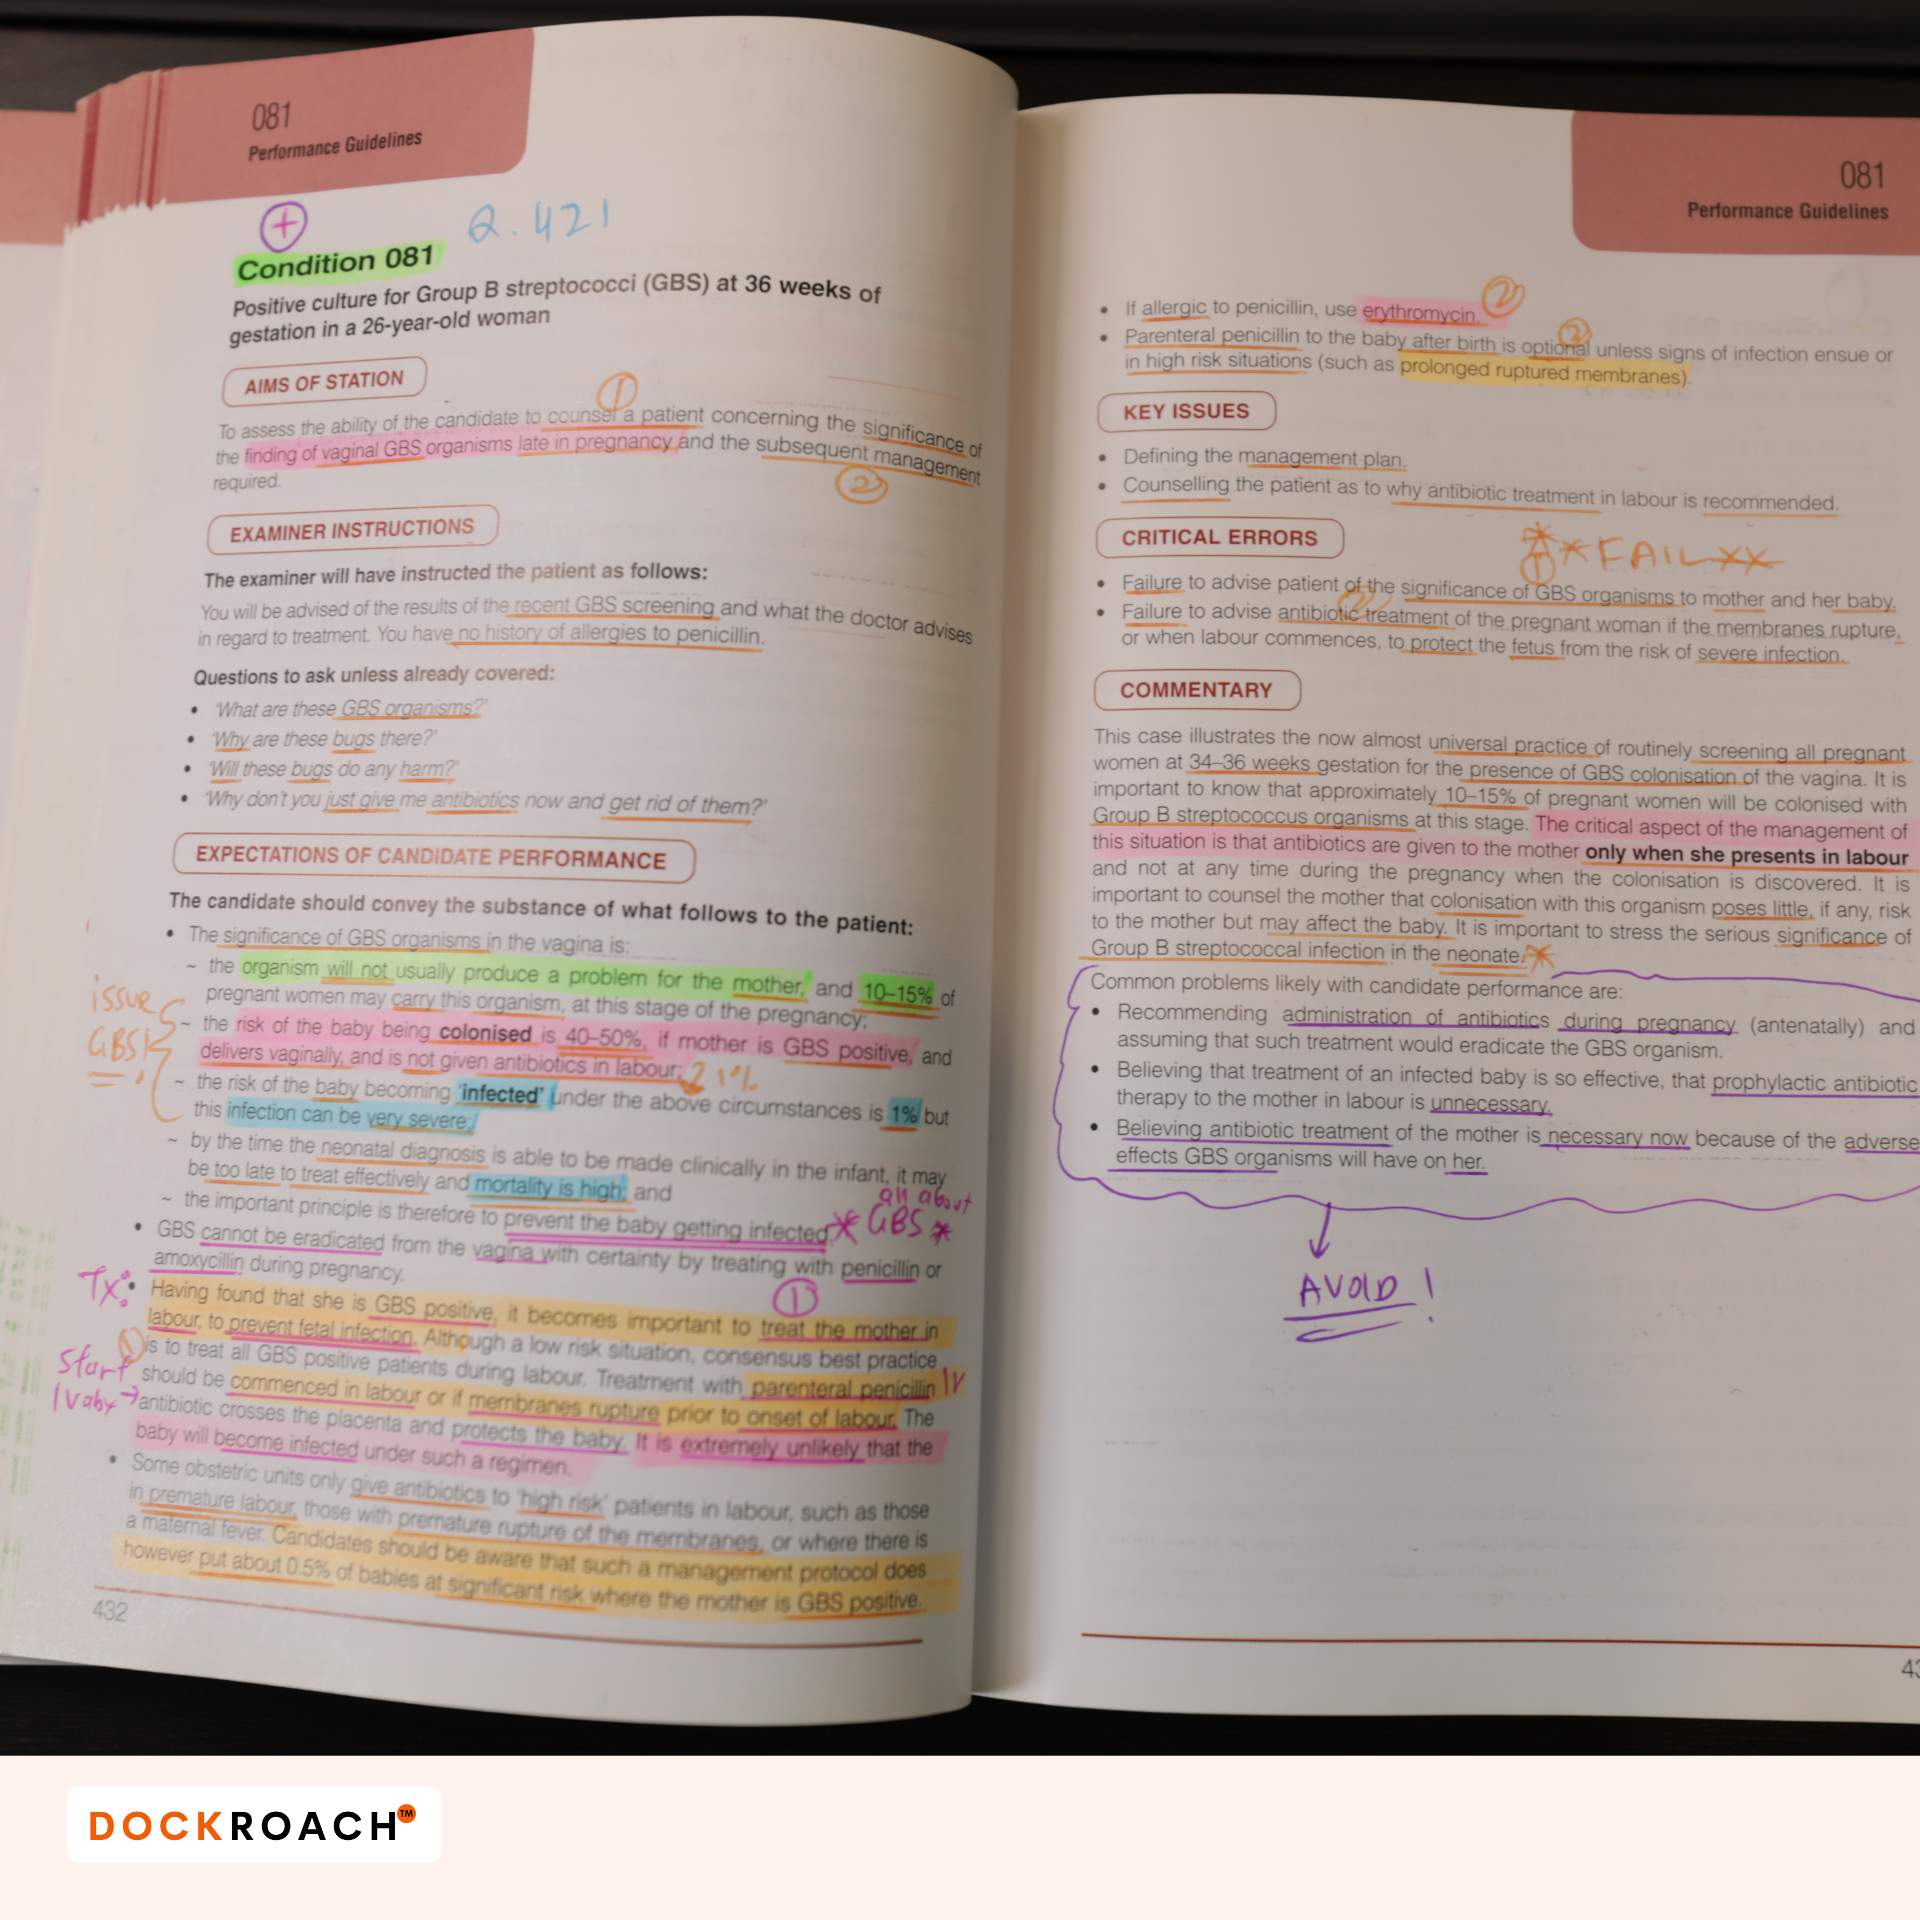 081
Performance Guidelines
+
Q. 421
Condition 081
Positive culture for Group B streptococci (GBS) at 36 weeks of
gestation in a 26-year-old woman
AIMS OF STATION
1
To assess the ability of the candidate to counsel a patient concerning the significance of
the finding of vaginal GBS organisms late in pregnancy and the subsequent management
required.
2
EXAMINER INSTRUCTIONS
The examiner will have instructed the patient as follows:
You will be advised of the results of the recent GBS screening and what the doctor advises
in regard to treatment. You have no history of allergies to penicillin.
Questions to ask unless already covered:
• 'What are these GBS organisms?'
• 'Why are these bugs there?'
• 'Will these bugs do any harm?'
• 'Why don't you just give me antibiotics now and get rid of them?'
EXPECTATIONS OF CANDIDATE PERFORMANCE
The candidate should convey the substance of what follows to the patient:
• The significance of GBS organisms in the vagina is:
~ the organism will not usually produce a problem for the mother, and 10–15% of
pregnant women may carry this organism, at this stage of the pregnancy;
issue
GBS
~ the risk of the baby being colonised is 40–50%, if mother is GBS positive, and
delivers vaginally, and is not given antibiotics in labour;
1%
~ the risk of the baby becoming 'infected' under the above circumstances is 1% but
this infection can be very severe;
~ by the time the neonatal diagnosis is able to be made clinically in the infant, it may
be too late to treat effectively and mortality is high; and
~ the important principle is therefore to prevent the baby getting infected.
all about
* GBS *
• GBS cannot be eradicated from the vagina with certainty by treating with penicillin or
amoxycillin during pregnancy.
1
Tx:
• Having found that she is GBS positive, it becomes important to treat the mother in
labour, to prevent fetal infection. Although a low risk situation, consensus best practice
1
is to treat all GBS positive patients during labour. Treatment with parenteral penicillin
IV
Start
IV abx →
should be commenced in labour or if membranes rupture prior to onset of labour. The
antibiotic crosses the placenta and protects the baby. It is extremely unlikely that the
baby will become infected under such a regimen.
• Some obstetric units only give antibiotics to 'high risk' patients in labour, such as those
in premature labour, those with premature rupture of the membranes, or where there is
a maternal fever. Candidates should be aware that such a management protocol does
however put about 0.5% of babies at significant risk where the mother is GBS positive.
432
081
Performance Guidelines
• If allergic to penicillin, use erythromycin.
2
2
• Parenteral penicillin to the baby after birth is optional unless signs of infection ensue or
in high risk situations (such as prolonged ruptured membranes).
KEY ISSUES
• Defining the management plan.
• Counselling the patient as to why antibiotic treatment in labour is recommended.
CRITICAL ERRORS
* FAIL XX
1
• Failure to advise patient of the significance of GBS organisms to mother and her baby.
2
• Failure to advise antibiotic treatment of the pregnant woman if the membranes rupture,
or when labour commences, to protect the fetus from the risk of severe infection.
COMMENTARY
This case illustrates the now almost universal practice of routinely screening all pregnant
women at 34–36 weeks gestation for the presence of GBS colonisation of the vagina. It is
important to know that approximately 10–15% of pregnant women will be colonised with
Group B streptococcus organisms at this stage. The critical aspect of the management of
this situation is that antibiotics are given to the mother only when she presents in labour
and not at any time during the pregnancy when the colonisation is discovered. It is
important to counsel the mother that colonisation with this organism poses little, if any, risk
to the mother but may affect the baby. It is important to stress the serious significance of
Group B streptococcal infection in the neonate.
Common problems likely with candidate performance are:
• Recommending administration of antibiotics during pregnancy (antenatally) and
assuming that such treatment would eradicate the GBS organism.
• Believing that treatment of an infected baby is so effective, that prophylactic antibiotic
therapy to the mother in labour is unnecessary.
• Believing antibiotic treatment of the mother is necessary now because of the adverse
effects GBS organisms will have on her.
AVOID !
DOCKROACH™